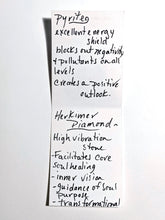 Pyrites
excellent energy
shield
blocks out negativity
& pollutants on all
levels
Creates a positive
outlook.
Herkimer
Diamond -
High vibration
stone
- Facilitates core
soul healing
- inner vision
- guidance of soul
purpose
- transformational